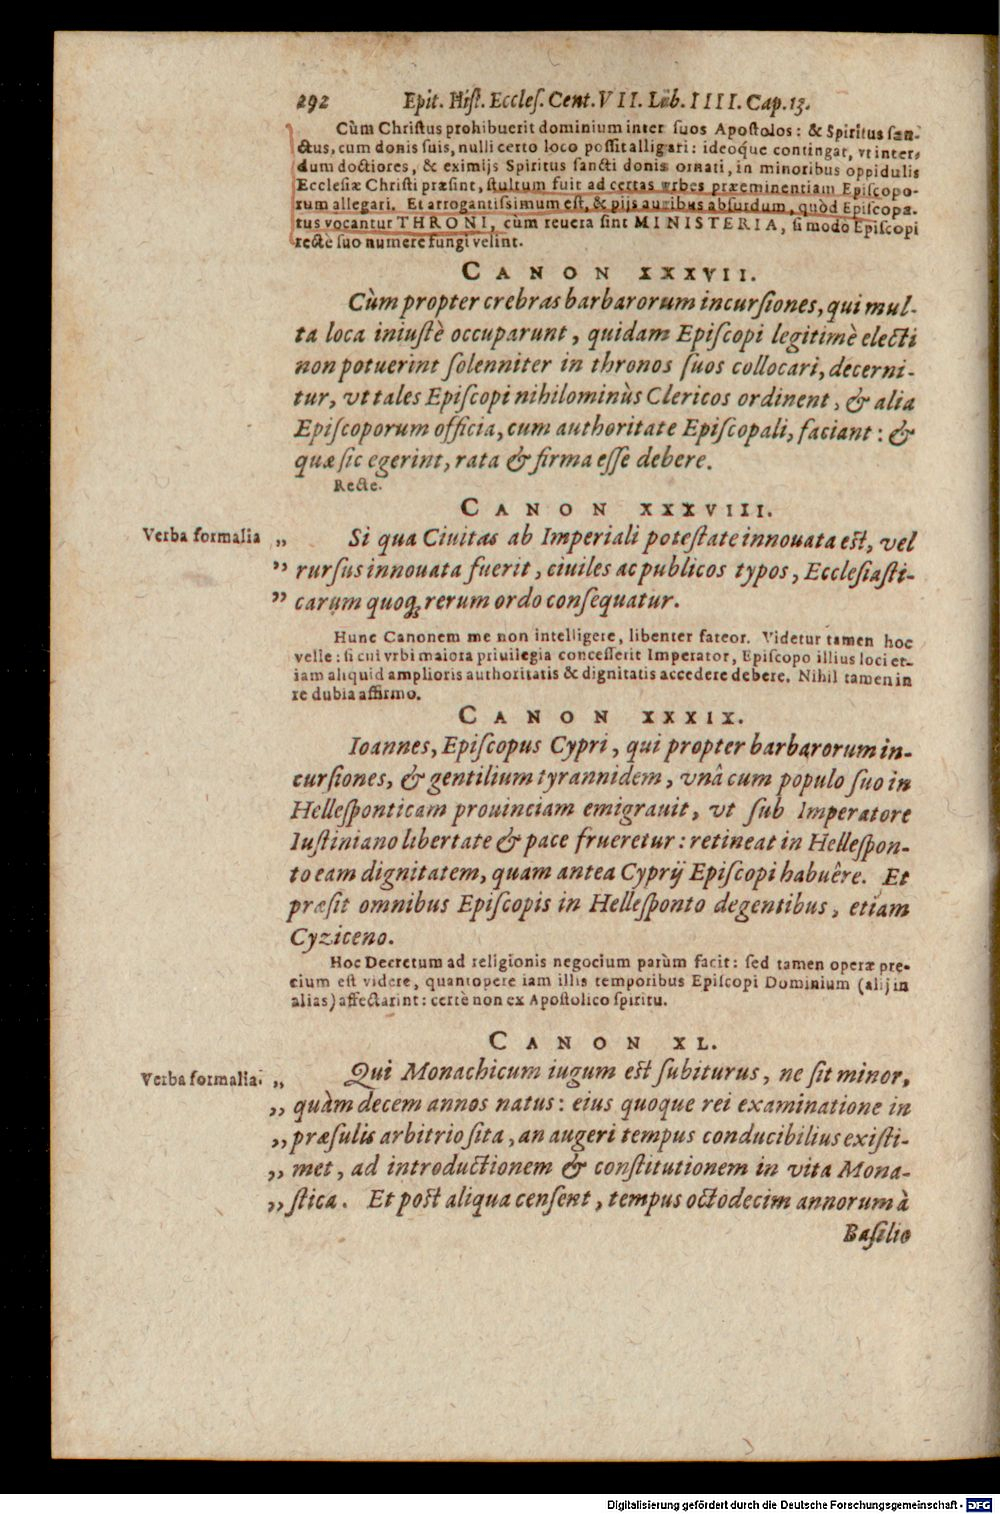 292 Epit. Hiſt. Eccleſ. Cent. VII. Lib. IIII. Cap. 13.
Cùm Chriſtus prohibuerit dominium inter ſuos Apoſtolos: & Spiritus ſan-
ctus, cum donis ſuis, nulli certo loco poſſit alligari: ideoque contingat, vt inter-
dum doctiores, & eximijs Spiritus ſancti donis ornati, in minoribus oppidulis
Eccleſiæ Chriſti præſint, ſtultum fuit ad certas vrbes præeminentiam Epiſcopo-
rum allegari. Et arrogantiſsimum eſt, & pijs auribus abſurdum, quòd Epiſcopa-
tus vocantur THRONI, cùm reuera ſint MINISTERIA, ſi modò Epiſcopi
rectè ſuo munere fungi velint.
CANON XXXVII.
Cùm propter crebras barbarorum incurſiones, qui mul-
ta loca iniuſtè occuparunt, quidam Epiſcopi legitimè electi
non potuerint ſolenniter in thronos ſuos collocari, decerni-
tur, vt tales Epiſcopi nihilominùs Clericos ordinent, & alia
Epiſcoporum officia, cum authoritate Epiſcopali, faciant: &
quæ ſic egerint, rata & firma eſſe debere.
Recte.
CANON XXXVIII.
Verba formalia „ Si qua Ciuitas ab Imperiali poteſtate innouata eſt, vel
„ rurſus innouata fuerit, ciuiles ac publicos typos, Eccleſiaſti-
„ carum quoq; rerum ordo conſequatur.
Hunc Canonem me non intelligere, libenter fateor. Videtur tamen hoc
velle: ſi cui vrbi maiora priuilegia conceſſerit Imperator, Epiſcopo illius loci et-
iam aliquid amplioris authoritatis & dignitatis accedere debere. Nihil tamen in
re dubia affirmo.
CANON XXXIX.
Ioannes, Epiſcopus Cypri, qui propter barbarorum in-
curſiones, & gentilium tyrannidem, vnâ cum populo ſuo in
Helleſponticam prouinciam emigrauit, vt ſub Imperatore
Iuſtiniano libertate & pace frueretur: retineat in Helleſpon-
to eam dignitatem, quam antea Cyprij Epiſcopi habuêre. Et
præſit omnibus Epiſcopis in Helleſponto degentibus, etiam
Cyziceno.
Hoc Decretum ad religionis negocium parùm facit: ſed tamen operæ pre-
cium eſt videre, quantopere iam illis temporibus Epiſcopi Dominium (alij in
alias) affectarint: certè non ex Apoſtolico ſpiritu.
CANON XL.
Verba formalia. „ Qui Monachicum iugum eſt ſubiturus, ne ſit minor,
„ quàm decem annos natus: eius quoque rei examinatione in
„ præſulis arbitrio ſita, an augeri tempus conducibilius exiſti-
„ met, ad introductionem & conſtitutionem in vita Mona-
„ ſtica. Et poſt aliqua cenſent, tempus octodecim annorum à
Baſilio
Digitalisierung gefördert durch die Deutsche Forschungsgemeinschaft - DFG